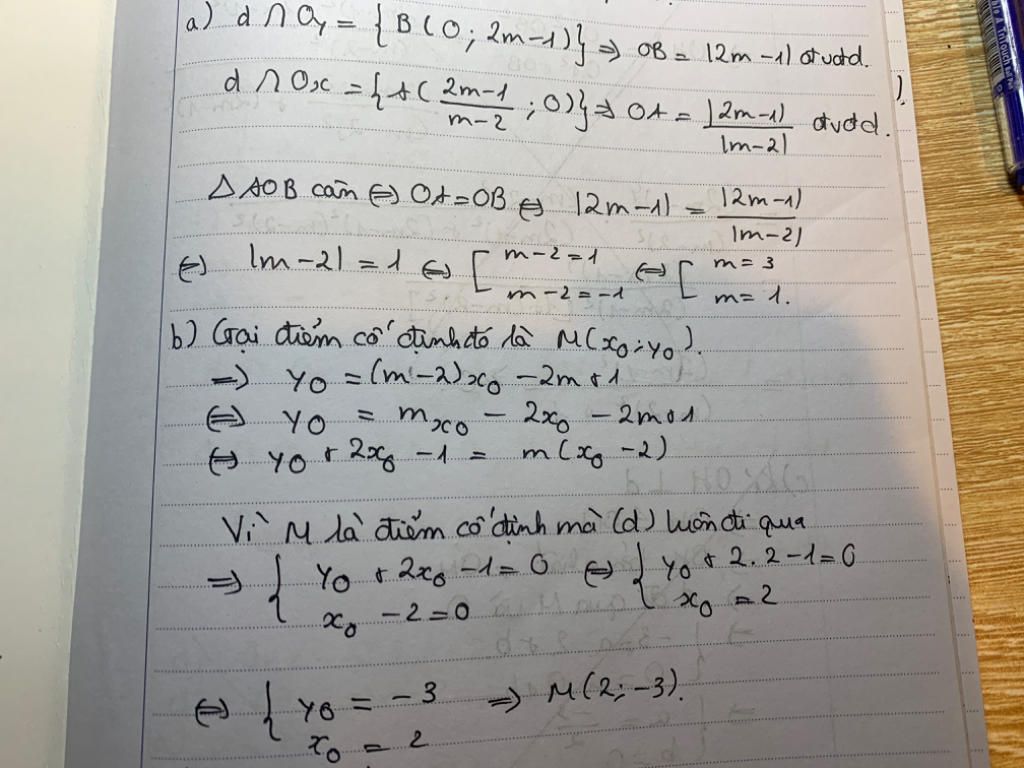 a) d ∩ Oy = {B(0; 2m-1)} ⇒ OB = |2m-1| đvđd.
d ∩ Ox = {A(\frac{2m-1}{m-2}; 0)} ⇒ OA = \frac{|2m-1|}{|m-2|} đvđd.
△AOB cân ⇔ OA = OB ⇔ |2m-1| = \frac{|2m-1|}{|m-2|}
⇔ |m-2| = 1 ⇔ [ m-2 = 1 ; m-2 = -1 ⇔ [ m = 3 ; m = 1.
b) Gọi điểm cố định đó là M(x₀; y₀).
⇒ y₀ = (m-2)x₀ - 2m + 1
⇔ y₀ = mx₀ - 2x₀ - 2m + 1
⇔ y₀ + 2x₀ - 1 = m(x₀ - 2)
Vì M là điểm cố định mà (d) luôn đi qua
⇒ { y₀ + 2x₀ - 1 = 0 ; x₀ - 2 = 0 ⇔ { y₀ + 2.2 - 1 = 0 ; x₀ = 2
⇔ { y₀ = -3 ; x₀ = 2 ⇒ M(2; -3).